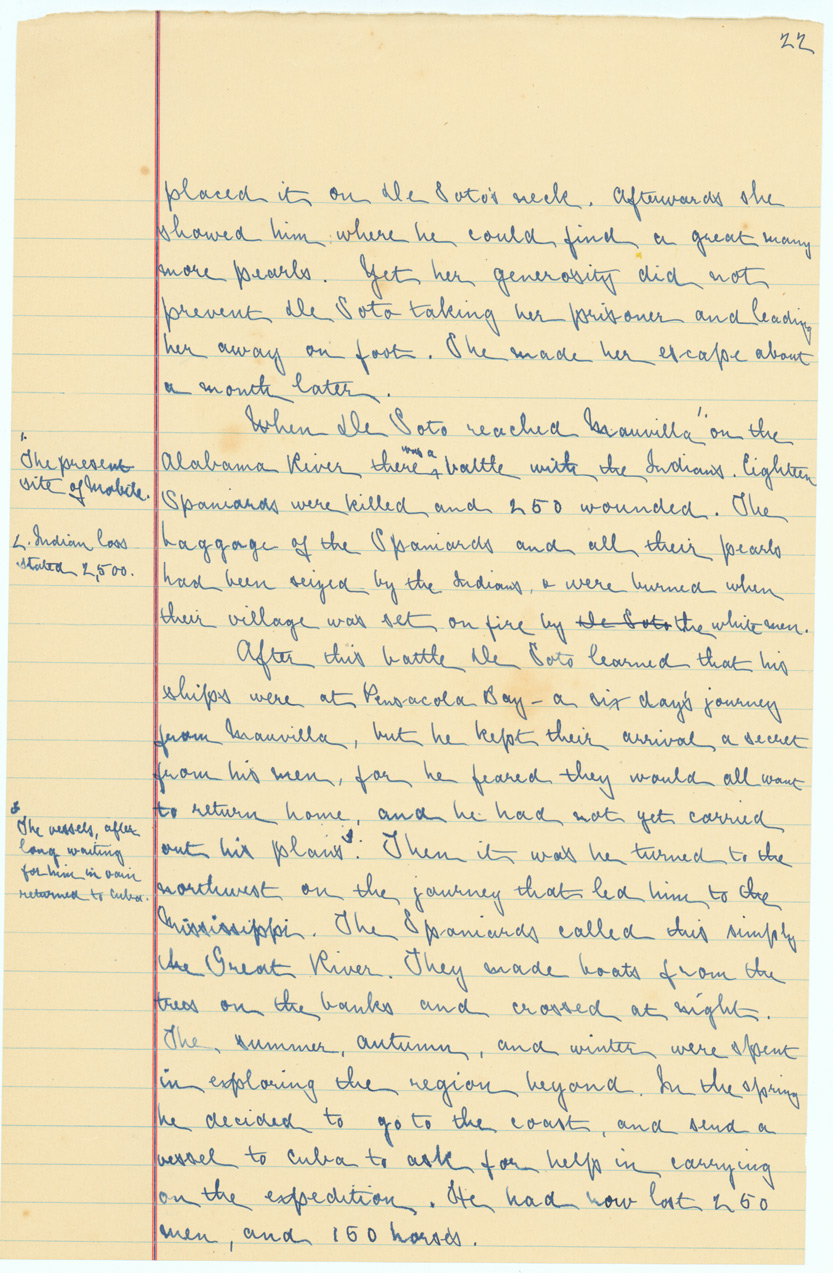 22
placed it on De Soto's neck. Afterwards she
showed him where he could find a great many
more pearls. Yet her generosity did not
prevent De Soto taking her prisoner and leading
her away on foot. She made her escape about
a month later.
When De Soto reached Mauvilla" on the
1.
The present
site of Mobile.
Alabama River there was a battle with the Indians. Eighteen
Spaniards were killed and 250 wounded. The
2. Indian loss
stated 2,500.
baggage of the Spaniards and all their pearls
had been seized by the Indians, & were burned when
their village was set on fire by De Soto the white men.
After this battle De Soto learned that his
ships were at Pensacola Bay – a six day's journey
from Mauvilla, but he kept their arrival a secret
from his men, for he feared they would all want
to return home, and he had not yet carried
3
The vessels, after
long waiting
for him in vain
returned to Cuba.
out his plans3. Then it was he turned to the
northwest on the journey that led him to the
Mississippi. The Spaniards called this simply
the Great River. They made boats from the
trees on the banks and crossed at night.
The summer, autumn, and winter were spent
in exploring the region beyond. In the spring
he decided to go to the coast, and send a
vessel to Cuba to ask for help in carrying
on the expedition. He had now lost 250
men, and 150 horses.